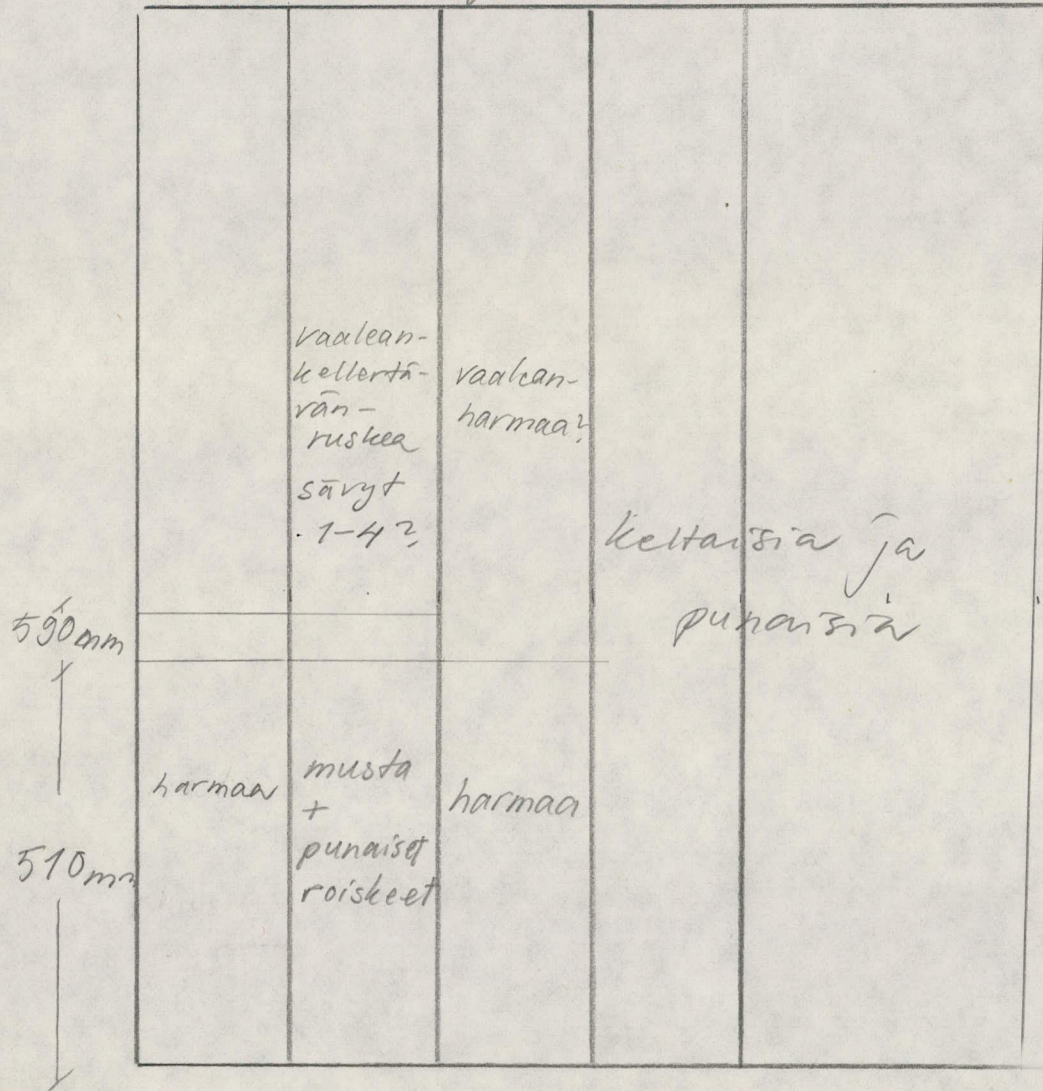 vaalean-
kellertä-
vän-
ruskea
sävyt
1-4?
vaalean-
harmaa?
keltaisia ja
punaisia
590mm
harmaa
musta
+
punaiset
roiskeet
harmaa
510mm